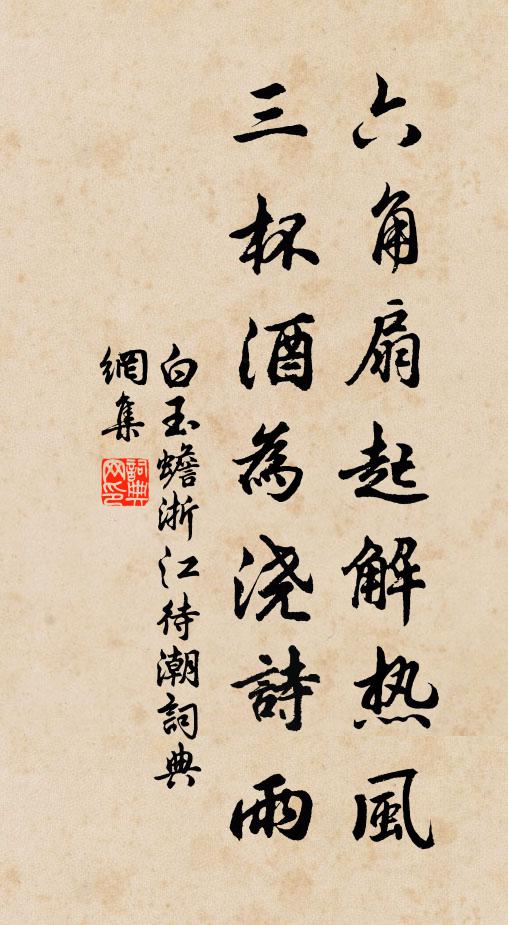 六角扇起解热風
三杯酒為浇詩雨
白玉蟾浙江待潮詞典
網集
詞典
网印